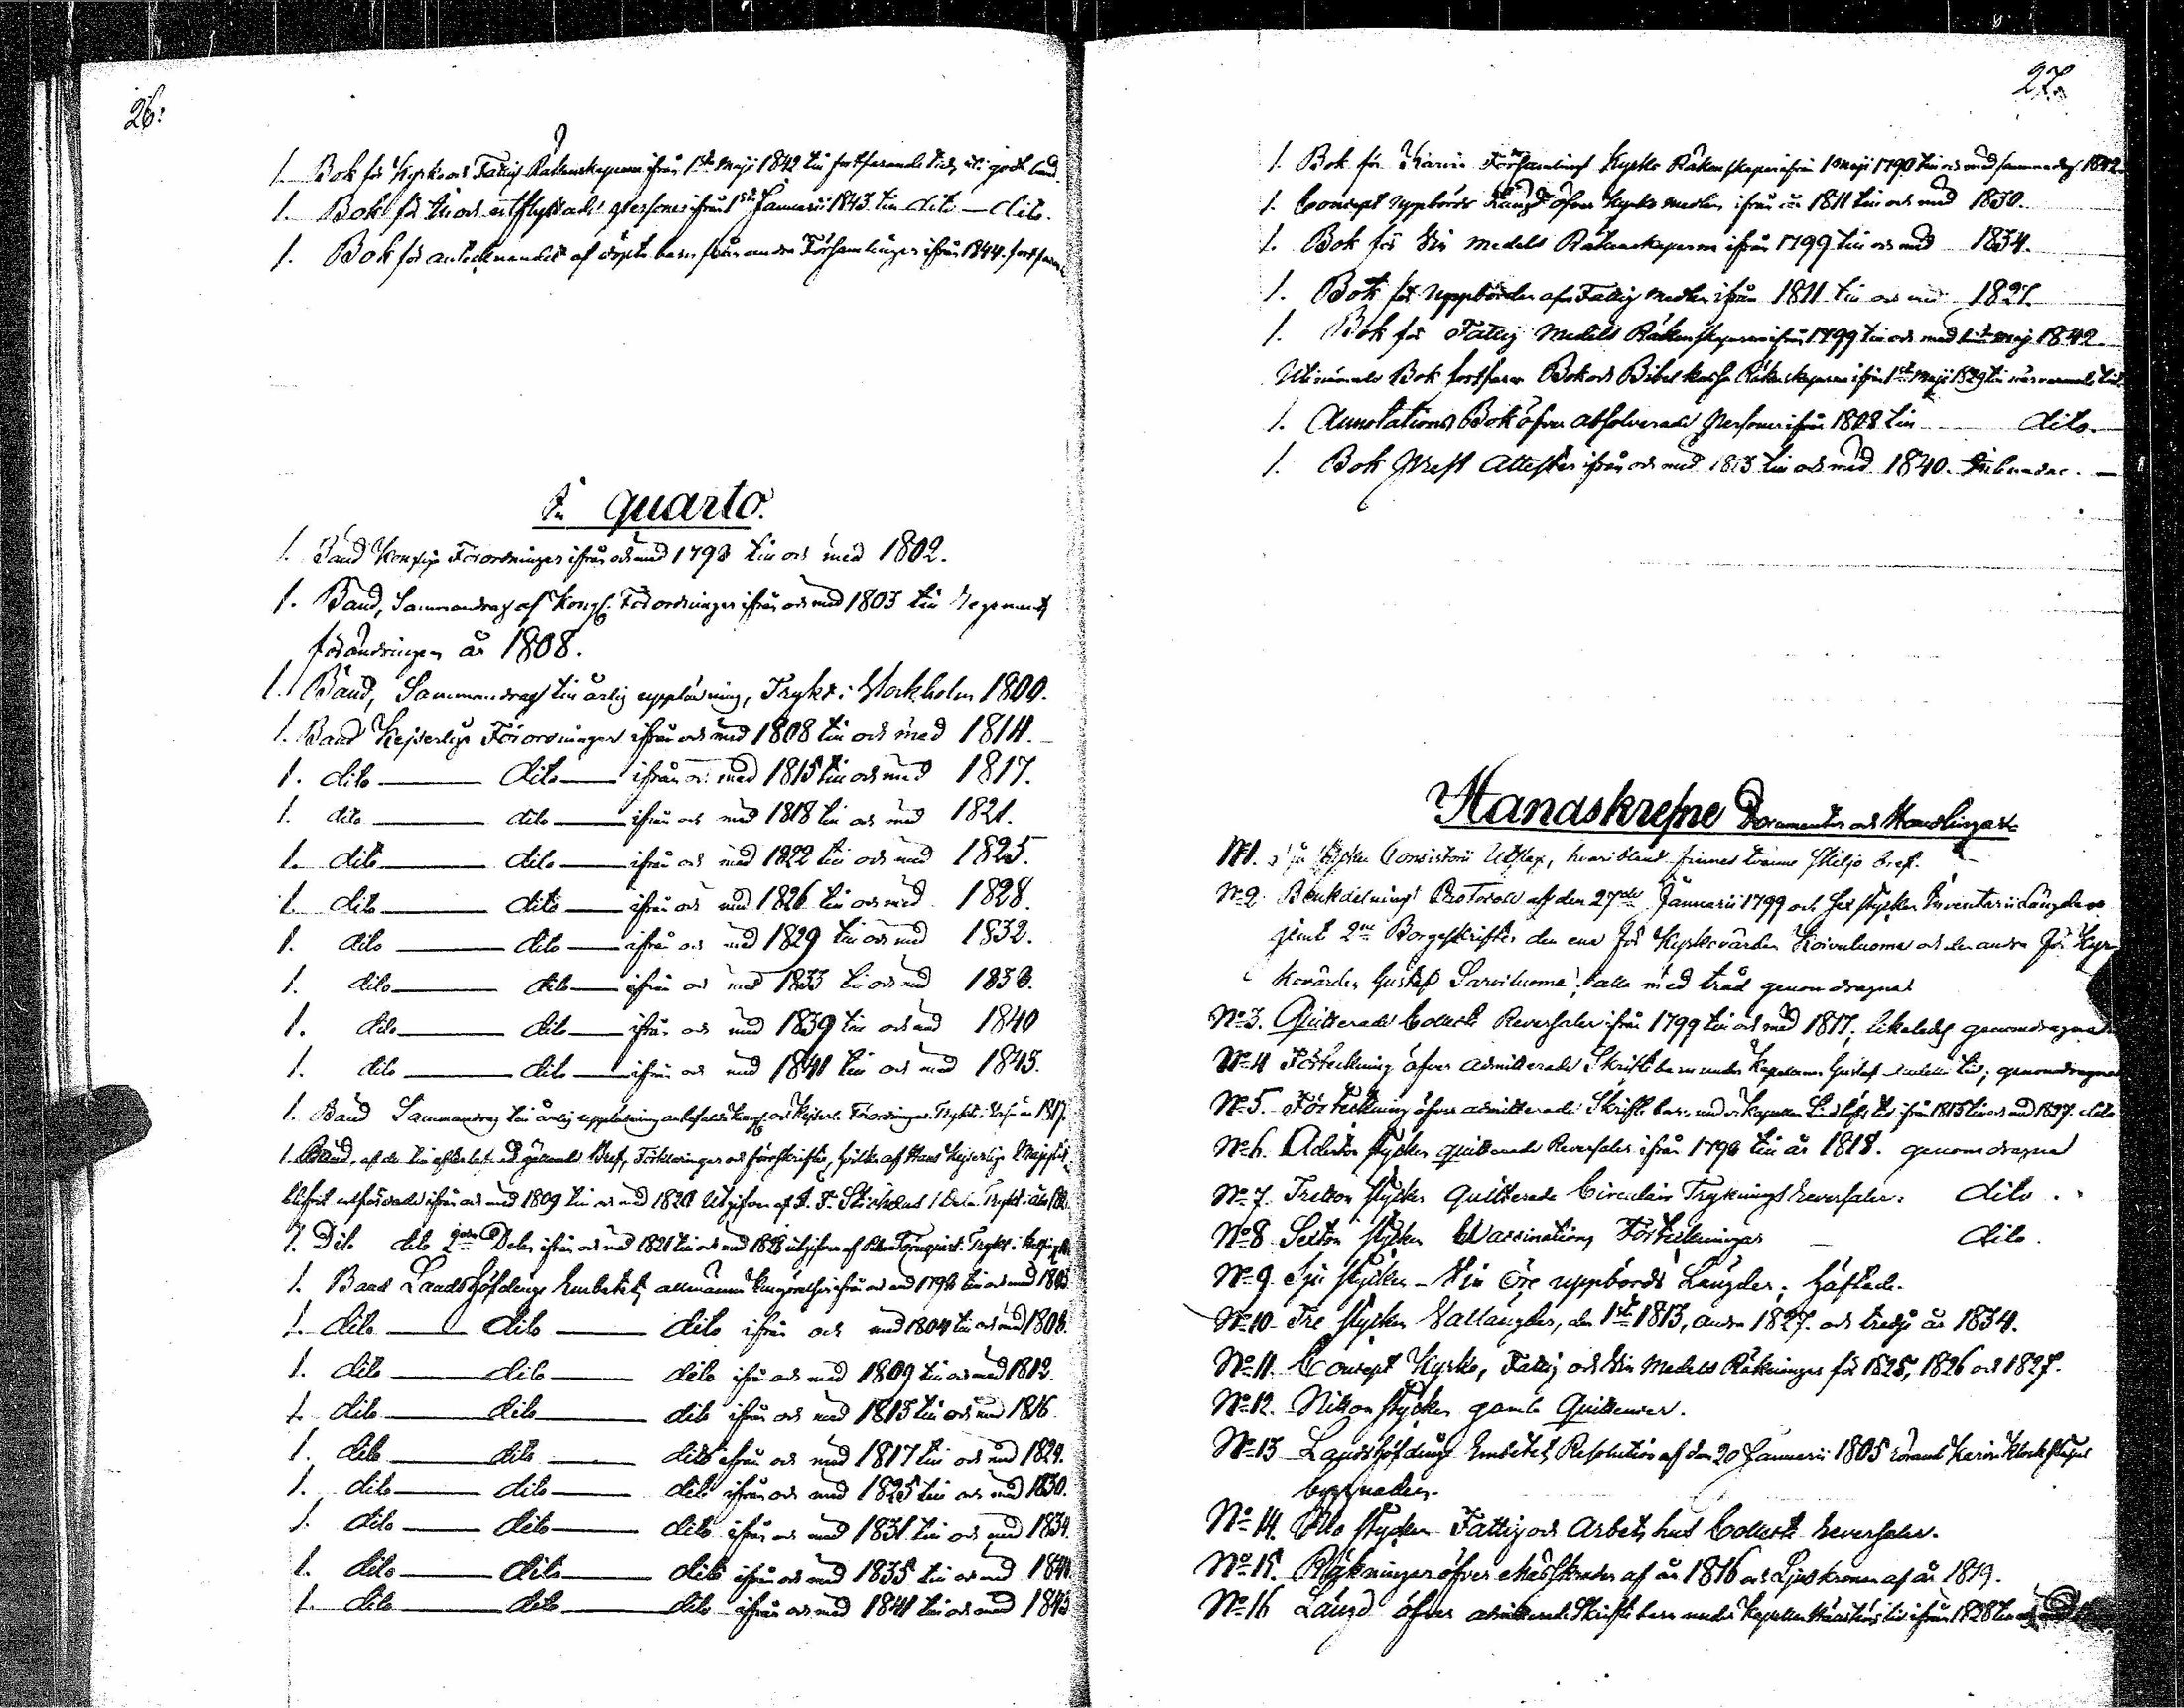 26:
1. Bok för Kyrko och Fattig Räkenskaperne ifrån 1ste Maji 1842 till fortfarande tid, uti godt band.
1. Bok för in och utflyttade personer ifrån 1ste Januarii 1843 till dito — dito.
1. Bok för antecknandet af döpte barn från andra Församlingar ifrån 1844. fortfar
In quarto.
1. Band Kongliga Förordningar ifrån och med 1793 till och med 1802.
1. Band, Sammandrag af Kongl. Förordningar ifrån och med 1803 till Regements
förändringen år 1808.
1. Band, Sammandrag till årlig uppläsning, Tryckt i Stockholm 1800.
1. Band Kejserliga Förordningar ifrån och med 1808 till och med 1814.
1. dito — dito — ifrån och med 1815 till och med 1817.
1. dito — dito — ifrån och med 1818 till och med 1821.
1. dito — dito — ifrån och med 1822 till och med 1825.
1. dito — dito — ifrån och med 1826 till och med 1828.
1. dito — dito — ifrån och med 1829 till och med 1832.
1. dito — dito — ifrån och med 1833 till och med
1. dito — dito — ifrån och med 1839 till och med 1840
1. dito — dito — ifrån och med 1841 till och med 1843.
1. Band Sammandrag till årlig uppläsning Kongl. och Kejserl. Förordningar. Tryckt i 1817.
1. Band, af de Bref, Förklaringar och föreskrifter, hvilka af Hans Kejserliga Majestät
blifvit utfärdade ifrån och med 1809 till och med 1820 Utgifven af
1. Dito dito 2dra Delen ifrån och med 1821 till och med utgifven af Törnqvist. Tryckt i Helsingfors
1. Band Landshöfdinge Embetets allmänna kungörelser ifrån och med till och med
1. dito — dito — dito ifrån och med 1804 till och med 1808.
1. dito — dito — dito ifrån och med 1809 till och med 1812.
1. dito — dito — dito ifrån och med 1813 till och med 1816.
1. dito — dito — dito ifrån och med 1817 till och med
1. dito — dito — dito ifrån och med 1825 till och med 1830.
1. dito — dito — dito ifrån och med 1831 till och med 1834.
1. dito — dito — dito ifrån och med 1835 till och med 1840
1. dito — dito — dito ifrån och med 1841 till och med 1843
27.
1. Bok för Församlings Kyrko Räkenskaper ifrån 1 Maji 1790 till och med samma dag 1842.
1. Concept uppbörds Längd öfver Kyrko medlen ifrån år 1811 till och med 1830.
1. Bok för medels Räkenskaperne ifrån 1799 till och med 1834.
1. Bok för uppbörden af Fattig medlen ifrån 1811 till och med
1. Bok för Fattig Medels Räkenskaperne ifrån 1799 till och med 1ste Maji 1842.
Bok fortfarer Bok och Bibel kassa Räkenskaperne ifrån 1ste Maji 1829 till närvarande tid.
1. Annotations Bok öfver absolverade Personer ifrån 1808 till — dito.
1. Bok Prest Attester ifrån och med 1813 till och med 1840. Inbundne. —
Handskrefne Documenter och Handlingar
N:o 1. stycken Consistorii Utslag, hvaribland finnes tvänne Skiljo bref.
N:o 2. Bänkdelnings Protocoll af den 27de Januarii 1799 och sex stycken Inventarii Längder
jemte 2ne Borgeskrifter den ena för Kyrkovärden Koivuluoma och den andra för Kyr-
kovärden Gustaf Sarviluoma; alla med tråd genomdragna
N:o 3. Quitterade Collect Reversaler ifrån 1799 till och med 1817; likaledes genomdragna
N:o 4 Förteckning öfver admitterade Skriftebarn under Kapellanen Gustaf tid; genomdragna
N:o 5. Förteckning öfver admitterade Skriftebarn under Kapellan tid ifrån 1815 till och med 1827. dito
N:o 6. Aderton stycken quitterade Reversaler ifrån till år 1818. genomdragna
N:o 7. Tretton stycken Quitterade Circulair Trycknings Reversaler. dito.
N:o 8. Sexton stycken Vaccinations Förteckningar — dito.
N:o 9. Sju stycken öre uppbörds Längder; häftade.
N:o 10. Tre stycken Vallängder, den 1sta 1813, andra 1827. och tredje år 1834.
N:o 11. Concept Kyrko, Fattig och Medels Räkningar för 1825, 1826 och 1827.
N:o 12. Nitton stycken gamla Quittencer.
N:o 13 Landshöfdinge Embetets Resolution af den 20 Januarii 1805 rörande Klockstapel
byggnaden.
N:o 14. Otto stycken Fattig och Arbetshus Collect Reversaler.
N:o 15. Räkningar öfver af år 1816 och Ljuskronan af år 1819.
N:o 16 Längd öfver admitterade Skriftebarn under Kapellan tid ifrån 1828 till och med